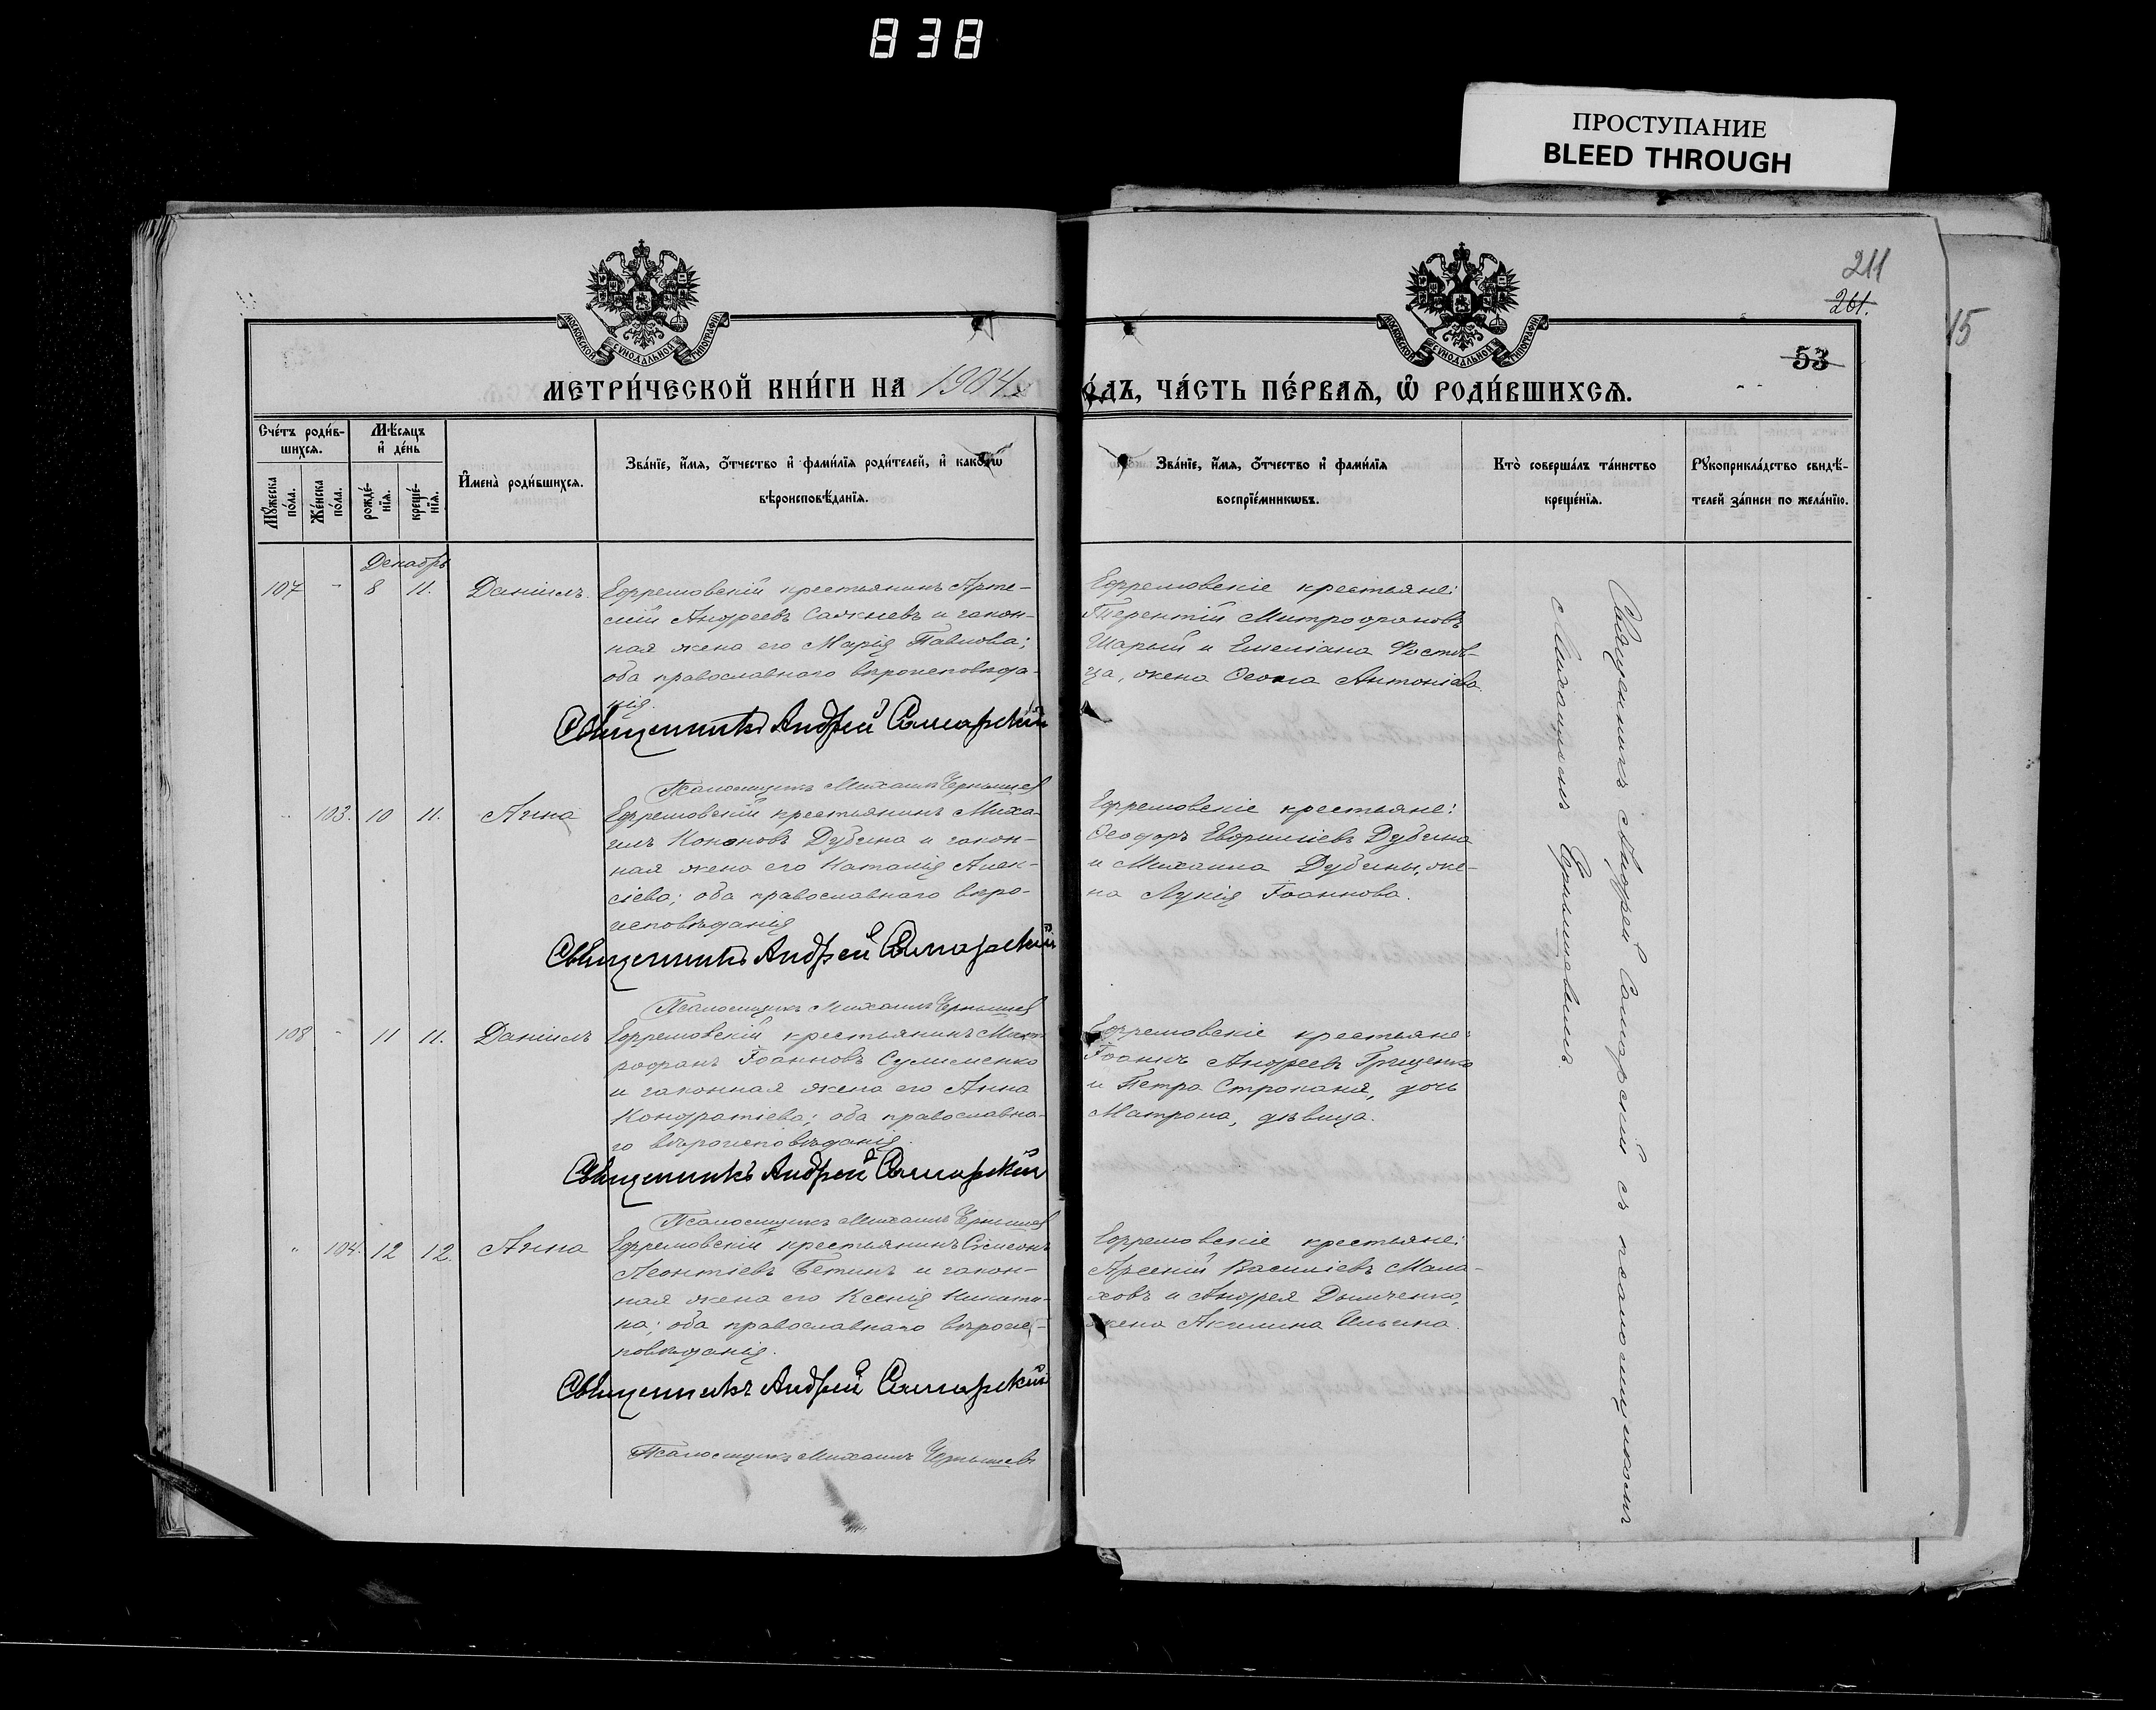 838
ПРОСТУПАНИЕ
BLEED THROUGH
211
261.
15
53
МОСКОВСКОЙ СѴНОДАЛЬНОЙ ТИПОГРАФІИ
МОСКОВСКОЙ СѴНОДАЛЬНОЙ ТИПОГРАФІИ
МЕТРИ́ЧЕСКОЙ КНИ́ГИ НА 1904
О́ДЪ, ЧА́СТЬ ПЕ́РВАѦ, Ѽ РОДИ́ВШИХСѦ.
Сче́тъ роди́в-
шихсѧ.
Мꙋ́жеска по́ла.
Же́нска по́ла.
Мѣ́сѧцъ
и҆ де́нь
рожде́-
нїѧ.
креще́-
нїѧ.
И҆мена̀ роди́вшихсѧ.
Зва́нїе, и҆́мѧ, ѻ҆́тчество и҆ фами́лїѧ роди́телей, и҆ како́гѡ
вѣроисповѣ́данїѧ.
Зва́нїе, и҆́мѧ, ѻ҆́тчество и҆ фами́лїѧ
воспрїе́мникѡвъ.
Кто̀ соверша́лъ та́инство
креще́нїѧ.
Рꙋкоприкла́дство свидѣ́-
телей за́писи по жела́нїю.
Декабрь
107 - 8 11. Даніилъ.
Ефремовскій крестьянинъ Арте-
мій Андреевъ Сажневъ и закон-
ная жена его Марія Павлова;
оба православнаго вѣроисповѣда-
нія.
Священникъ Андрей Самарскій
Псаломщикъ Михаилъ Чернышев
Ефремовскіе крестьяне:
Терентій Митрофановъ
Шарый и Емеліана Ростов-
ца, жена Ѳеокла Антоніева.
103. 10 11. Анна
Ефремовскій крестьянинъ Миха-
илъ Кононовъ Дубина и закон-
ная жена его Наталія Алек-
сіева; оба православнаго вѣро-
исповѣданія
Священникъ Андрей Самарскій
Псаломщикъ Михаилъ Чернышев
Ефремовскіе крестьяне:
Ѳеодоръ Евфиміевъ Дубина
и Михаила Дубины, же-
на Лукія Іоаннова.
108 - 11 11. Даніилъ
Ефремовскій крестьянинъ Мит-
рофанъ Іоанновъ Сулименко
и законная жена его Анна
Кондратіева; оба православна-
го вѣроисповѣданія.
Священникъ Андрей Самарскій
Псаломщикъ Михаилъ Чернышев
Ефремовскіе крестьяне:
Іоаннъ Андреевъ Гриценко
и Петра Строканя, дочь
Матрона, дѣвица.
" 104. 12 12. Анна
Ефремовскій крестьянинъ Сѵмеонъ
Леонтіевъ Бетинъ и закон-
ная жена его Ксенія Никити-
на; оба православнаго вѣроис-
повѣданія.
Священникъ Андрей Самарскій
Псаломщикъ Михаилъ Чернышевъ
Ефремовскіе крестьяне:
Арсеній Василіевъ Мала-
ховъ и Андрея Дымченко,
жена Акилина Ильина.
Священникъ Андрей Самарскій съ псаломщикомъ
Михаиломъ Чернышевымъ.